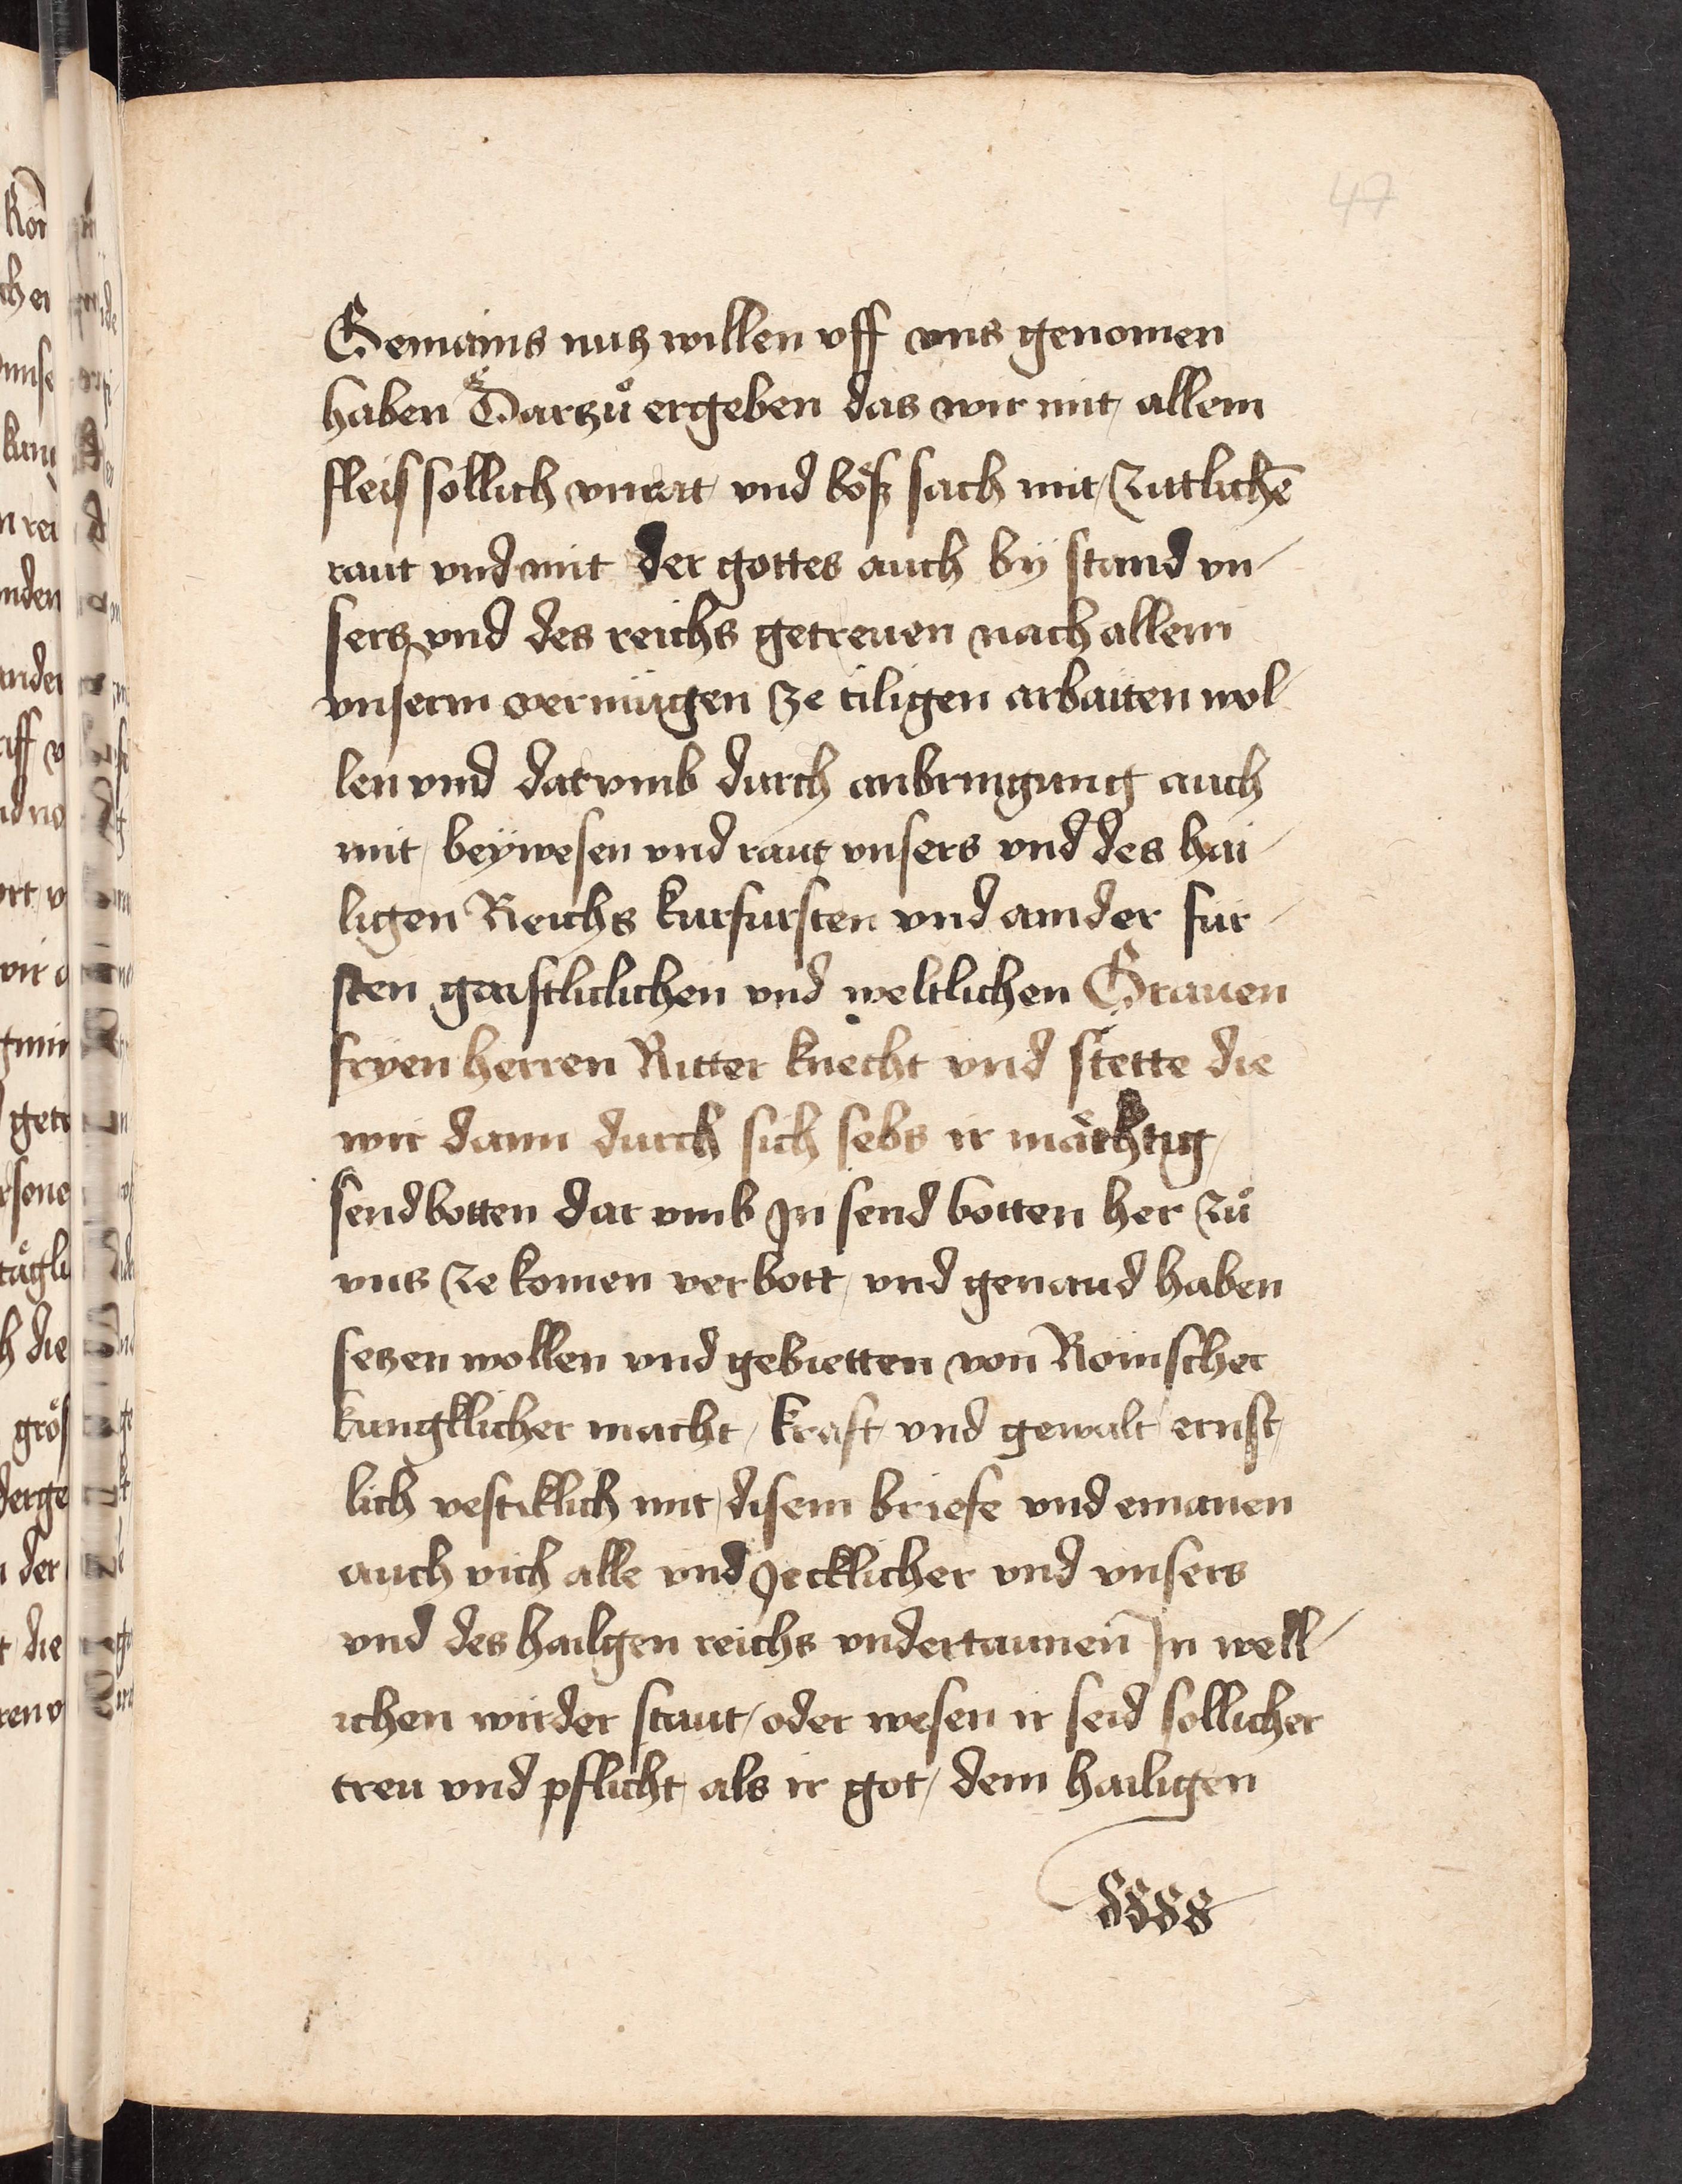 47
Gemains nutz willen vff vns genomen
haben Darzuͦ ergeben das wir mit allem
fleis sollich vnrat vnd böß sach mit zitlichē
raut vnd mit der gottes auch bÿ stand vn
sers vnd des reichs getreuen nach allem
vnserm vermügen ze tiligen arbaiten wol
len vnd darvmb durch anbringung auch
mit beÿwesen vnd raut vnsers vnd des hai
ligen Reichs kurfursten vnd annder für
sten gaistliclichen vnd weltlichen Grauen
fryen herren Ritter knecht vnd stette die
wir dann durch sich sebs ir mächtig
sendbotten dar vmb In send botten her zuͦ
vns ze komen verbott vnd genand haben
setzen wollen vnd gebietten von Römscher
kungklicher macht / kraft vnd gewalt ernst
lich vestiklich mit disem briefe vnd emanen
auch vich alle vnd Jecklicher vnd vnsers
vnd des hailgen reichs vndertaunen In well
ichen wirder staut / oder wesen ir seid sollicher
treu vnd pflicht als ir got / dem hailigen